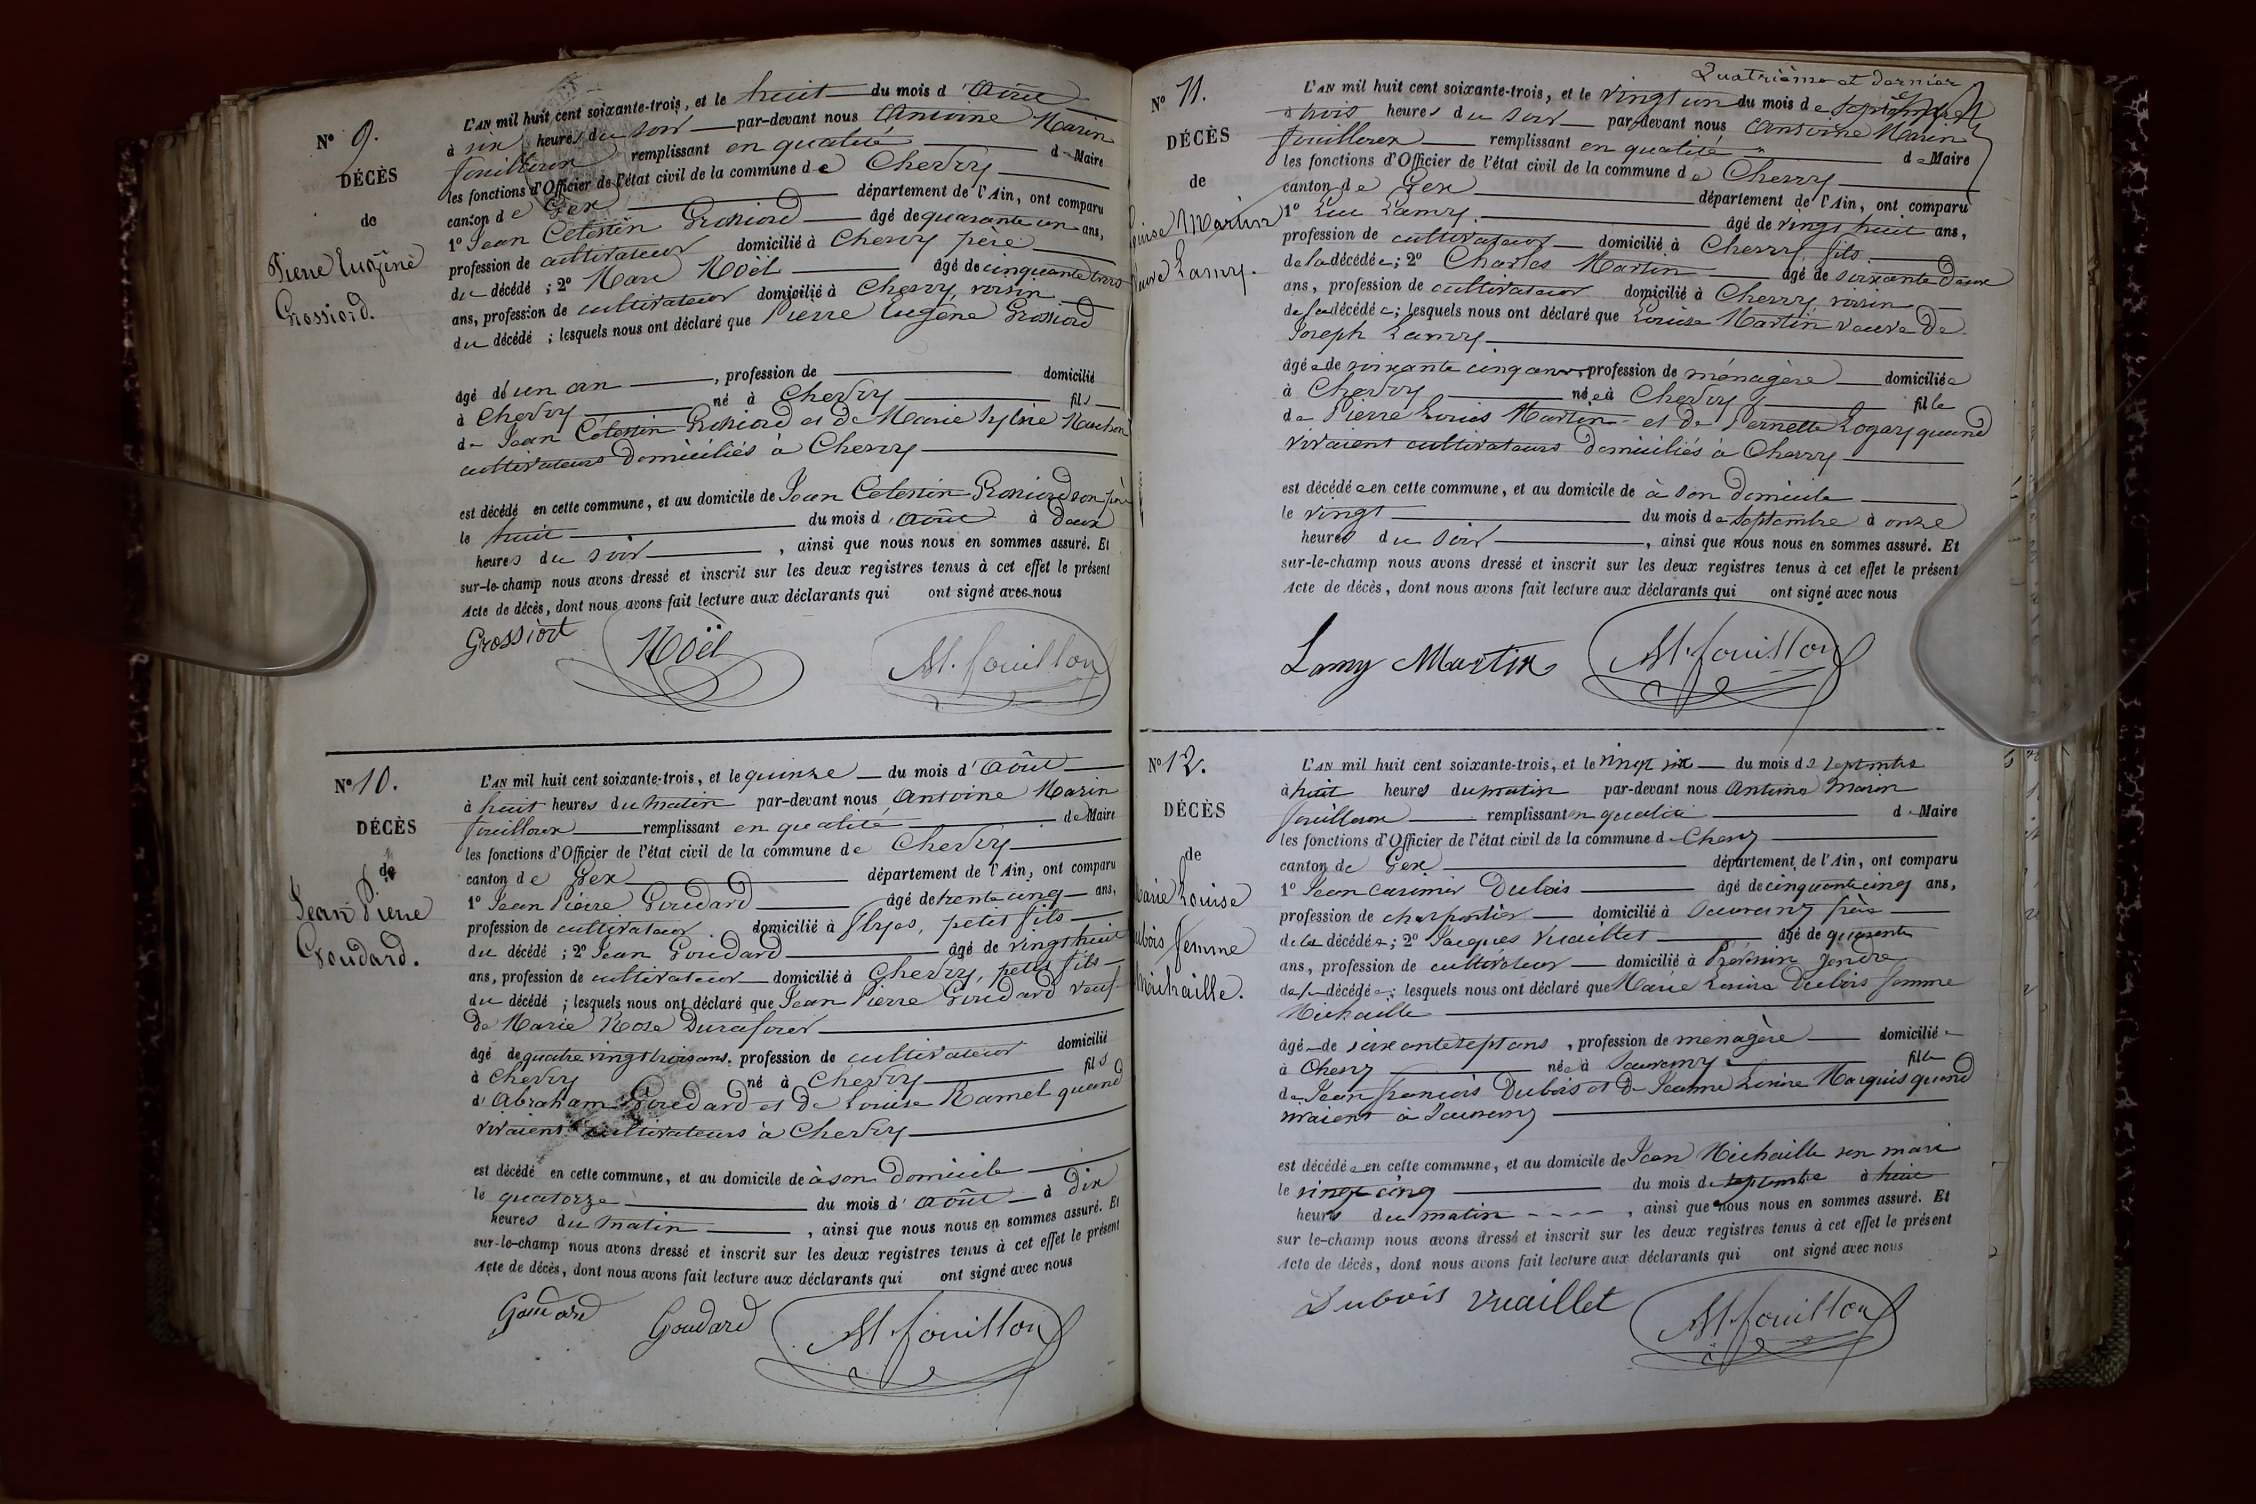 N° 9.
DÉCÈS
de
Pierre Eugène
Grossiord.
L'AN mil huit cent soixante-trois, et le huit du mois d'Août
à six heures du soir par-devant nous Antoine Marin
fouilloux remplissant en qualité de Maire
les fonctions d'Officier de l'état civil de la commune de Chevry
canton de Gex département de l'Ain, ont comparu
1° Jean Célestin Grossiord âgé de quarante un ans,
profession de cultivateur domicilié à Chevry père
du décédé ; 2° Marc Noël âgé de cinquante trois
ans, profession de cultivateur domicilié à Chevry, voisin
du décédé ; lesquels nous ont déclaré que Pierre Eugène Grossiord
âgé d'un an , profession de domicilié
à Chevry né à Chevry fils
de Jean Célestin Grossiord et de Marie Sylvie
cultivateurs domiciliés à Chevry
est décédé en cette commune, et au domicile de Jean Célestin Grossiord son père
le huit du mois d'Août à deux
heures du soir , ainsi que nous nous en sommes assuré. Et
sur-le-champ nous avons dressé et inscrit sur les deux registres tenus à cet effet le présent
Acte de décès, dont nous avons fait lecture aux déclarants qui ont signé avec nous
Grossiort Noël M. fouilloux
N° 10.
DÉCÈS
de
Jean Pierre
Goudard.
L'AN mil huit cent soixante-trois, et le quinze du mois d'Août
à huit heures du matin par-devant nous Antoine Marin
fouilloux remplissant en qualité de Maire
les fonctions d'Officier de l'état civil de la commune de Chevry
canton de Gex département de l'Ain, ont comparu
1° Jean Pierre Goudard âgé de trente cinq ans,
profession de cultivateur domicilié à petit fils
du décédé ; 2° Jean Goudard âgé de vingt huit
ans, profession de cultivateur domicilié à Chevry, petit fils
du décédé ; lesquels nous ont déclaré que Jean Pierre Goudard veuf
de Marie Rose Durafour
âgé de quatre vingt trois ans, profession de cultivateur domicilié
à Chevry né à Chevry fils
d'Abraham Goudard et de Louise Ramel quand
vivaient cultivateurs à Chevry
est décédé en cette commune, et au domicile de à son domicile
le quatorze du mois d'Août à dix
heures du matin , ainsi que nous nous en sommes assuré. Et
sur-le-champ nous avons dressé et inscrit sur les deux registres tenus à cet effet le présent
Acte de décès, dont nous avons fait lecture aux déclarants qui ont signé avec nous
Goudard Goudard M. fouilloux
Quatrième et dernier
N° 11.
DÉCÈS
de
Louise Martin
veuve Lamy.
L'AN mil huit cent soixante-trois, et le vingt un du mois de septembre
à trois heures du soir par-devant nous Antoine Marin
fouilloux remplissant en qualité de Maire
les fonctions d'Officier de l'état civil de la commune de Chevry
canton de Gex département de l'Ain, ont comparu
1° Luc Lamy âgé de vingt huit ans,
profession de cultivateur domicilié à Chevry, fils
de la décédée ; 2° Charles Martin âgé de soixante deux
ans, profession de cultivateur domicilié à Chevry voisin
de la décédée ; lesquels nous ont déclaré que Louise Martin veuve de
Joseph Lamy
âgée de soixante cinq ans profession de ménagère domiciliée
à Chevry née à Chevry fille
de Pierre Louis Martin et de Pernette quand
vivaient cultivateurs domiciliés à Chevry
est décédée en cette commune, et au domicile de à son domicile
le vingt du mois de septembre à onze
heures du soir , ainsi que nous nous en sommes assuré. Et
sur-le-champ nous avons dressé et inscrit sur les deux registres tenus à cet effet le présent
Acte de décès, dont nous avons fait lecture aux déclarants qui ont signé avec nous
Lamy Martin M. fouilloux
N° 12.
DÉCÈS
de
Marie Louise
Dubois femme
Michaille.
L'AN mil huit cent soixante-trois, et le vingt six du mois de septembre
à huit heures du matin par-devant nous Antoine Marin
fouilloux remplissant en qualité de Maire
les fonctions d'Officier de l'état civil de la commune de Chevry
canton de Gex département de l'Ain, ont comparu
1° Jean Casimir Dubois âgé de cinquante cinq ans,
profession de charpentier domicilié à Sauverny frère
de la décédée ; 2° Jacques Vuaillet âgé de quarante
ans, profession de cultivateur domicilié à Prévessin gendre
de la décédée ; lesquels nous ont déclaré que Marie Louise Dubois femme
Michaille
âgée de soixante sept ans , profession de ménagère domiciliée
à Chevry née à Sauverny fille
de Jean françois Dubois et de Jeanne Louise Marquis quand
vivaient à Sauverny
est décédée en cette commune, et au domicile de Jean Michaille son mari
le vingt cinq du mois de septembre à huit
heures du matin , ainsi que nous nous en sommes assuré. Et
sur le-champ nous avons dressé et inscrit sur les deux registres tenus à cet effet le présent
Acte de décès, dont nous avons fait lecture aux déclarants qui ont signé avec nous
Dubois Vuaillet M. fouilloux